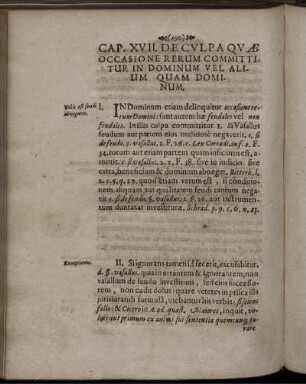 (100)
CAP. XVII. DE CVLPA QVÆ
OCCASIONE RERUM COMMITTI-
TUR IN DOMINUM VEL ALI-
UM QUAM DOMI-
NUM.
I. INDominum etiam delinquitur occasione re-
rum Domini: sunt autem hæ feudales vel non
feudales. In illis culpa committitur 1. si Vasallus
feudum aut partem ejus malitiosè negaverit, c. si
de feudo. §. vasallus. 2. F. 26.
34. totam aut etiam partem quam inficiatus est, a-
mittit. c. si vasallus. 2. F. 18. sive in judicio sive
extra, beneficium & dominum abneget,
quod etiam verum est, si conditio-
nem aliquam aut qualitatem feudi tantum nega-
verit. c. si de feudo. §. vasallus. 2. F. 26. aut instrumen-
tum
Exceptiones.
II. Si ignorans tamen id fecerit, excusabitur.
d. §. vasallus. quia in errantem & ignorantem, non
vasallum de feudo investitum, sed ejus successo-
rem, non cadit dolus: quare veteres in prisca illa
jurisjurandi formula, utebantur his verbis: si sciens
fallo: & Cicero in 4. ad quæst. Majores, inquit, vo-
luerunt primum ex animi sui sententia quemcunq; ju-
rare